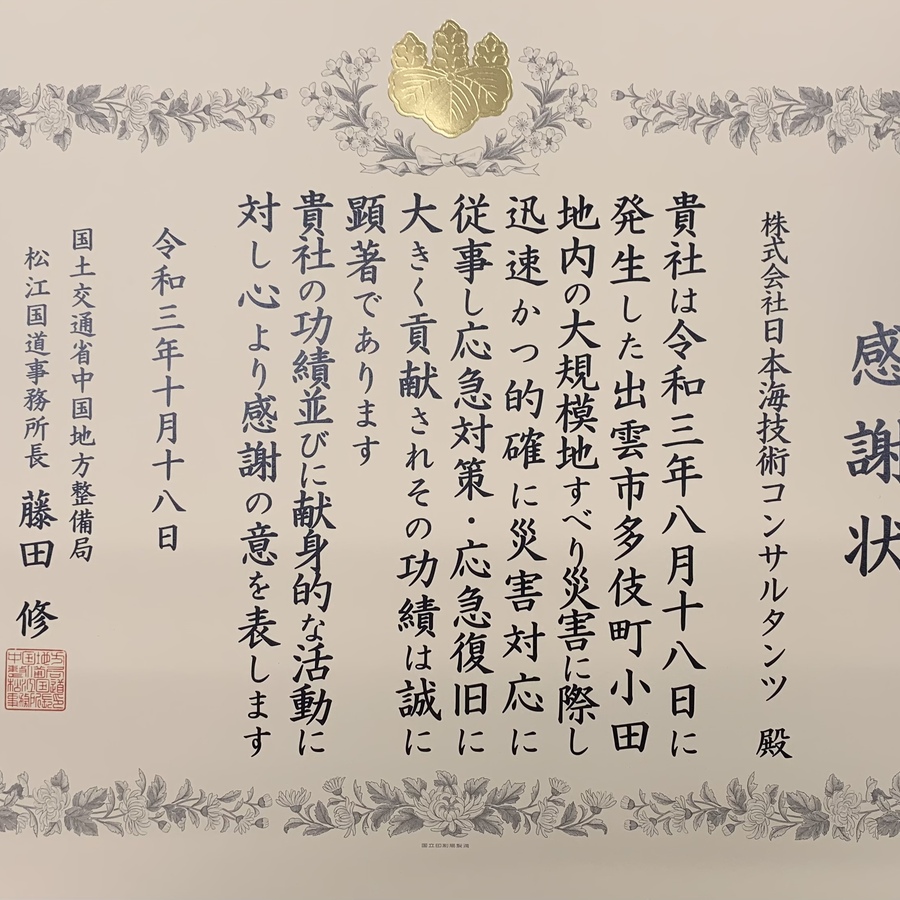 感謝状
株式会社日本海技術コンサルタンツ 殿
貴社は令和三年八月十八日に
発生した出雲市多伎町小田
地内の大規模地すべり災害に際し
迅速かつ的確に災害対応に
従事し応急対策・応急復旧に
大きく貢献されその功績は誠に
顕著であります
貴社の功績並びに献身的な活動に
対し心より感謝の意を表します
令和三年十月十八日
国土交通省中国地方整備局
松江国道事務所長 藤田 修
国立印刷局製造